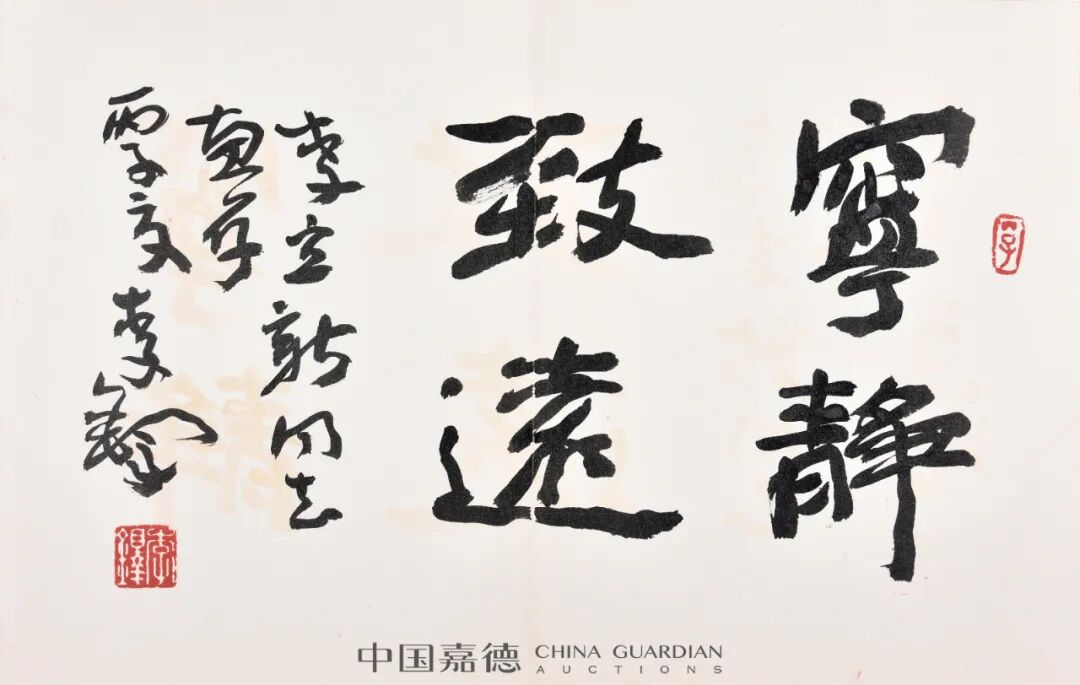 寧靜
致遠
李立新同志
惠存
丙子夏李鐸
李鐸
中国嘉德 CHINA GUARDIAN
AUCTIONS